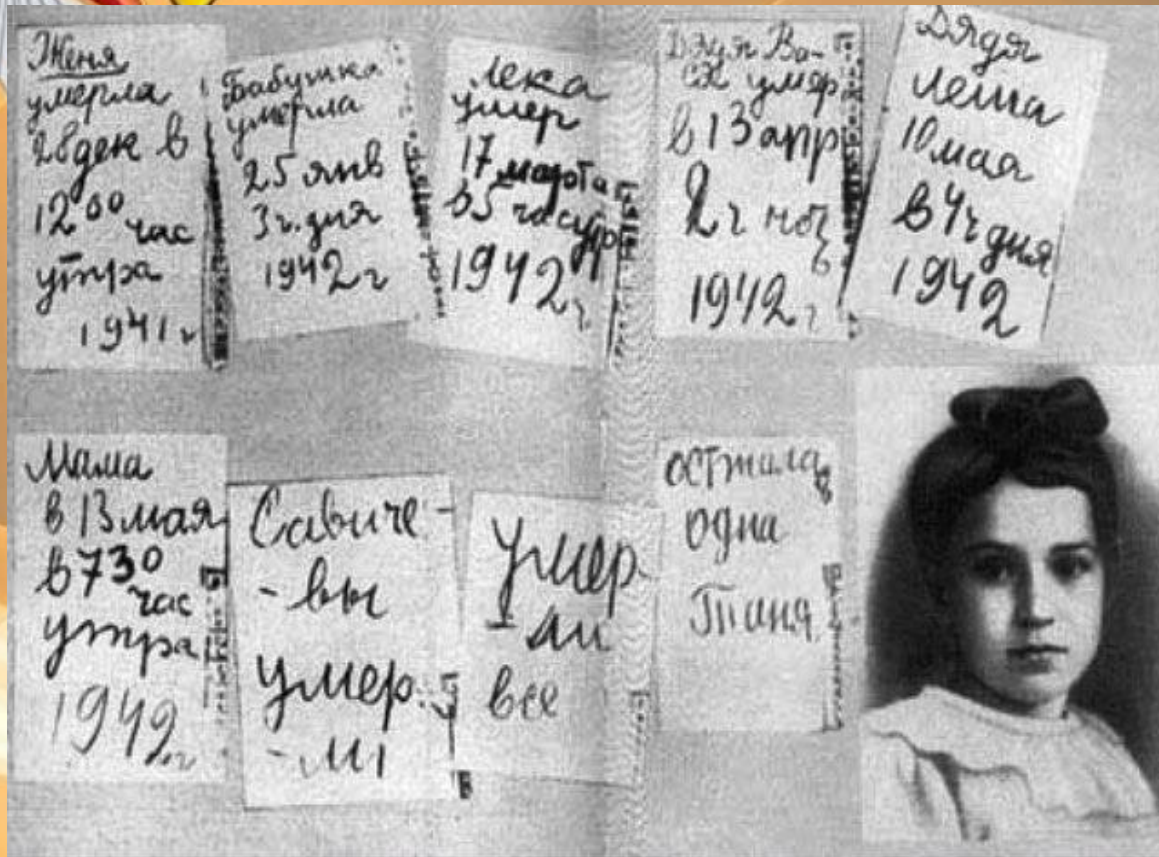 Женя
умерла
28 дек в
12 00 час
утра
1941 г
Бабушка
умерла
25 янв
3 ч. дня
1942 г
Лека
умер
17 марта
в 5 час утр
1942 г
Дядя Ва-
ся умер
в 13 апр
2 ч ночь
1942 г
Дядя
Леша
10 мая
в 4 ч дня
1942
Мама
в 13 мая
в 7 30
час
утра
1942 г
Савиче-
-вы
умер
-ли
Умер
-ли
все
осталась
одна
Таня